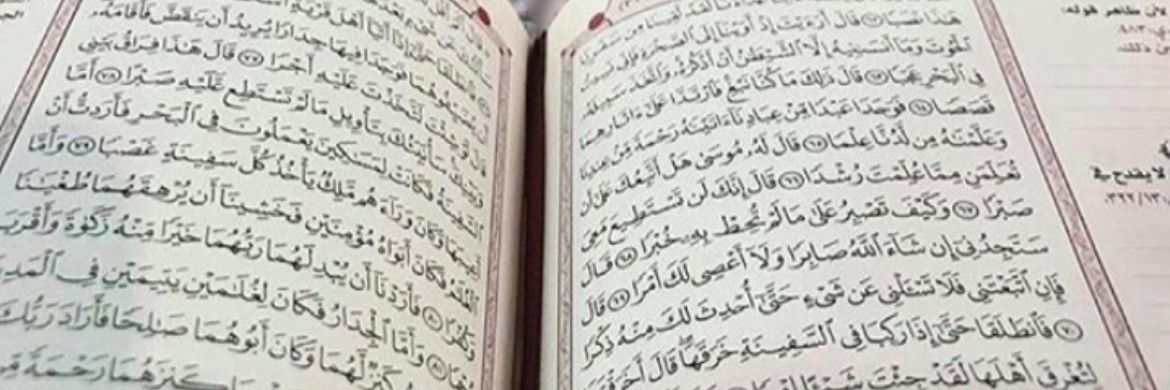 لَقَدْ لَقِينَا مِن سَفَرِنَا
هَٰذَا نَصَبًا ٦٢ قَالَ أَرَءَيْتَ إِذْ أَوَيْنَآ إِلَى ٱلصَّخْرَةِ فَإِنِّي نَسِيتُ
ٱلْحُوتَ وَمَآ أَنسَىٰنِيهُ إِلَّا ٱلشَّيْطَٰنُ أَنْ أَذْكُرَهُۥ وَٱتَّخَذَ سَبِيلَهُۥ
فِي ٱلْبَحْرِ عَجَبًا ٦٣ قَالَ ذَٰلِكَ مَا كُنَّا نَبْغِ فَٱرْتَدَّا عَلَىٰٓ ءَاثَارِهِمَا
قَصَصًا ٦٤ فَوَجَدَا عَبْدًا مِّنْ عِبَادِنَآ ءَاتَيْنَٰهُ رَحْمَةً مِّنْ عِندِنَا
وَعَلَّمْنَٰهُ مِن لَّدُنَّا عِلْمًا ٦٥ قَالَ لَهُۥ مُوسَىٰ هَلْ أَتَّبِعُكَ عَلَىٰٓ أَن
تُعَلِّمَنِ مِمَّا عُلِّمْتَ رُشْدًا ٦٦ قَالَ إِنَّكَ لَن تَسْتَطِيعَ مَعِيَ
صَبْرًا ٦٧ وَكَيْفَ تَصْبِرُ عَلَىٰ مَا لَمْ تُحِطْ بِهِۦ خُبْرًا ٦٨ قَالَ
سَتَجِدُنِيٓ إِن شَآءَ ٱللَّهُ صَابِرًا وَلَآ أَعْصِي لَكَ أَمْرًا ٦٩ قَالَ
فَإِنِ ٱتَّبَعْتَنِي فَلَا تَسْـَٔلْنِي عَن شَيْءٍ حَتَّىٰٓ أُحْدِثَ لَكَ مِنْهُ ذِكْرًا
٧٠ فَٱنطَلَقَا حَتَّىٰٓ إِذَا رَكِبَا فِي ٱلسَّفِينَةِ خَرَقَهَا قَالَ أَخَرَقْتَهَا
لِتُغْرِقَ أَهْلَهَا لَقَدْ جِئْتَ شَيْـًٔا إِمْرًا
لأن ظاهر قوله:
لا يقدح في
فَٱنطَلَقَا حَتَّىٰٓ إِذَآ أَتَيَآ أَهْلَ قَرْيَةٍ
أَن يُضَيِّفُوهُمَا فَوَجَدَا فِيهَا جِدَارًا يُرِيدُ أَن يَنقَضَّ فَأَقَامَهُۥ
قَالَ لَوْ شِئْتَ لَتَّخَذْتَ عَلَيْهِ أَجْرًا ٧٧ قَالَ هَٰذَا فِرَاقُ بَيْنِي
وَبَيْنِكَ سَأُنَبِّئُكَ بِتَأْوِيلِ مَا لَمْ تَسْتَطِع عَّلَيْهِ صَبْرًا ٧٨ أَمَّا
ٱلسَّفِينَةُ فَكَانَتْ لِمَسَٰكِينَ يَعْمَلُونَ فِي ٱلْبَحْرِ فَأَرَدتُّ أَنْ
أَعِيبَهَا وَكَانَ وَرَآءَهُم مَّلِكٌ يَأْخُذُ كُلَّ سَفِينَةٍ غَصْبًا ٧٩ وَأَمَّا
ٱلْغُلَٰمُ فَكَانَ أَبَوَاهُ مُؤْمِنَيْنِ فَخَشِينَآ أَن يُرْهِقَهُمَا طُغْيَٰنًا
وَكُفْرًا ٨٠ فَأَرَدْنَآ أَن يُبْدِلَهُمَا رَبُّهُمَا خَيْرًا مِّنْهُ زَكَوٰةً وَأَقْرَبَ
رُحْمًا ٨١ وَأَمَّا ٱلْجِدَارُ فَكَانَ لِغُلَٰمَيْنِ يَتِيمَيْنِ فِي ٱلْمَدِينَةِ
كَنزٌ لَّهُمَا وَكَانَ أَبُوهُمَا صَٰلِحًا فَأَرَادَ رَبُّكَ
كَنزَهُمَا رَحْمَةً مِّن